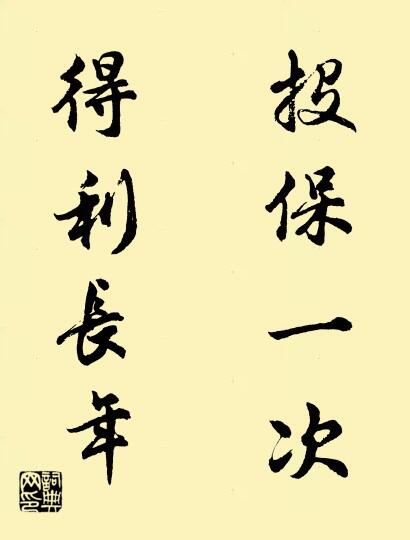 投保一次
得利長年
詞典網印